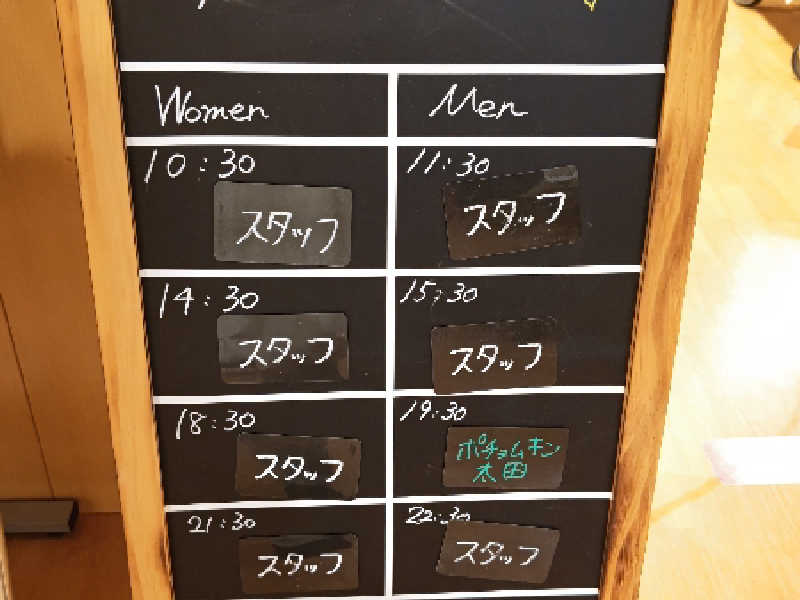 Women Men
10:30 11:30
スタッフ スタッフ
14:30 15:30
スタッフ スタッフ
18:30 19:30
スタッフ ポチョムキン
太田
21:30 22:30
スタッフ スタッフ